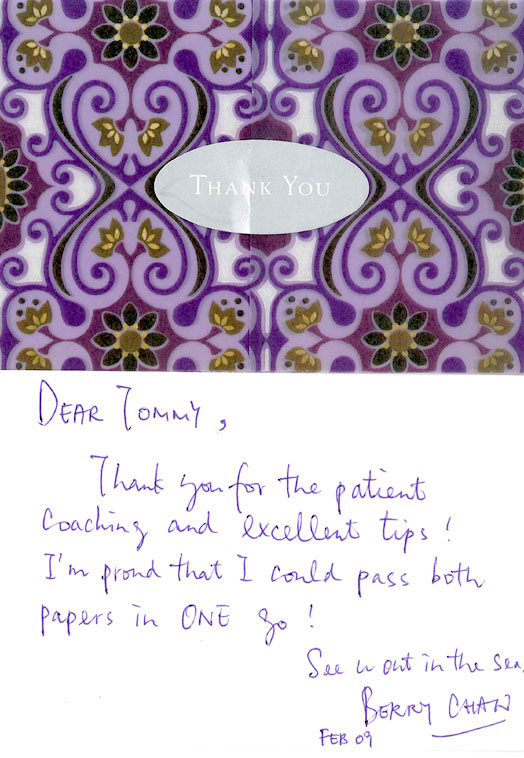 THANK YOU
DEAR TOMMY,
Thank you for the patient
coaching and excellent tips!
I'm proud that I could pass both
papers in ONE go!
See u out in the sea.
BERRY CHAN
FEB 09